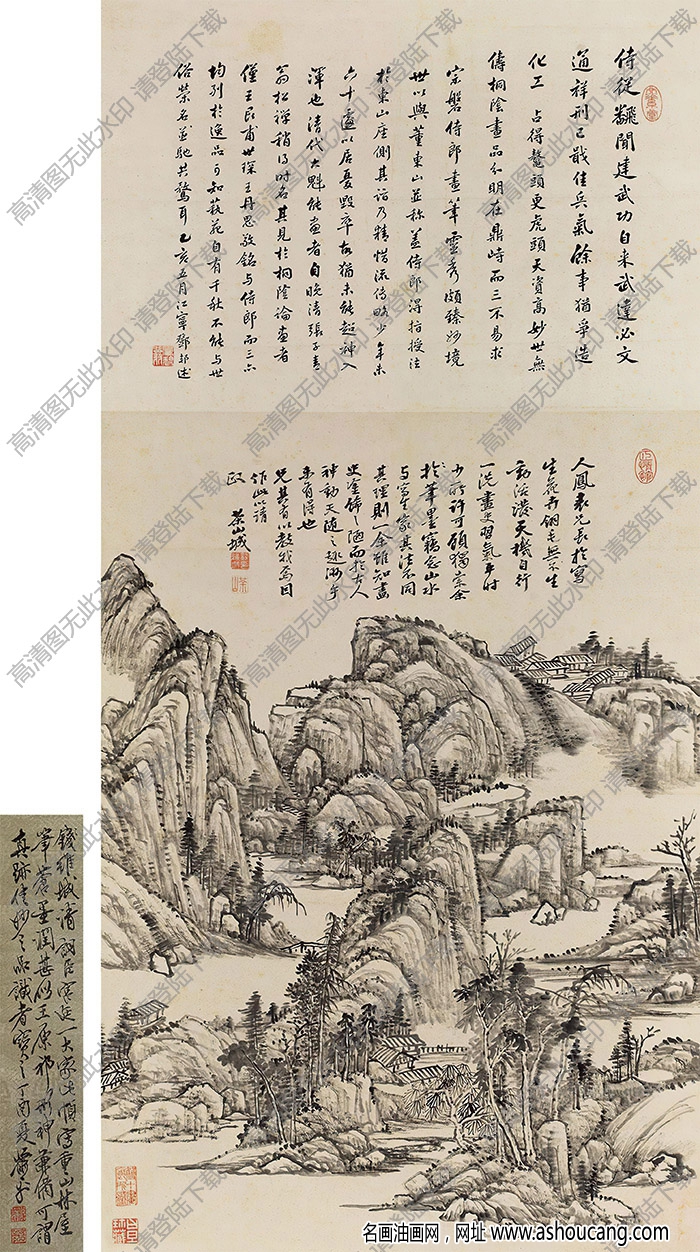 侍從翩聞建武功自来武達必文
通祥刑已戢佳兵氣餘事猶爭造
化工 占得鼇頭更虎頭天資高妙世無
儔桐陰畫品分明在鼎峙而三不易求
宗磐侍郎畫筆靈秀頗臻妙境
世以與董東山並称蓋侍郎得指授法
於東山座側其詣乃精惜流傳略少年未
六十遽以居憂毀卒故猶未能超神入
渾也清代大魁能畫者自晚清張子青
翁松禪稍得時名其見於桐陰論畫者
僅王艮甫世琛王丹思敬銘与侍郎而三亦
均列於逸品可知藝苑自有千秋不能与世
俗榮名並馳共騖耳 己亥五月江寧鄧邦述
人鳳表兄長於寫
生花卉翎毛無不生
動活潑天機自行
一洗畫史習氣平時
少所許可顧獨崇余
於筆墨竊念山水
与寫生家其法不同
其理則一余雖知畫
史塗飾之陋而於古人
神動天随之趣渺乎
未有得也
兄其有以教我焉因
作此以請
政 茶山城
錢維城清詞臣一大家此幀寫重山林屋
筆蒼墨潤甚似王原祁形神兼備可謂
真跡佳妙之品識者寶之丁酉夏
高清图无此水印 请登陆下载
名画油画网，网址 www.ashoucang.com